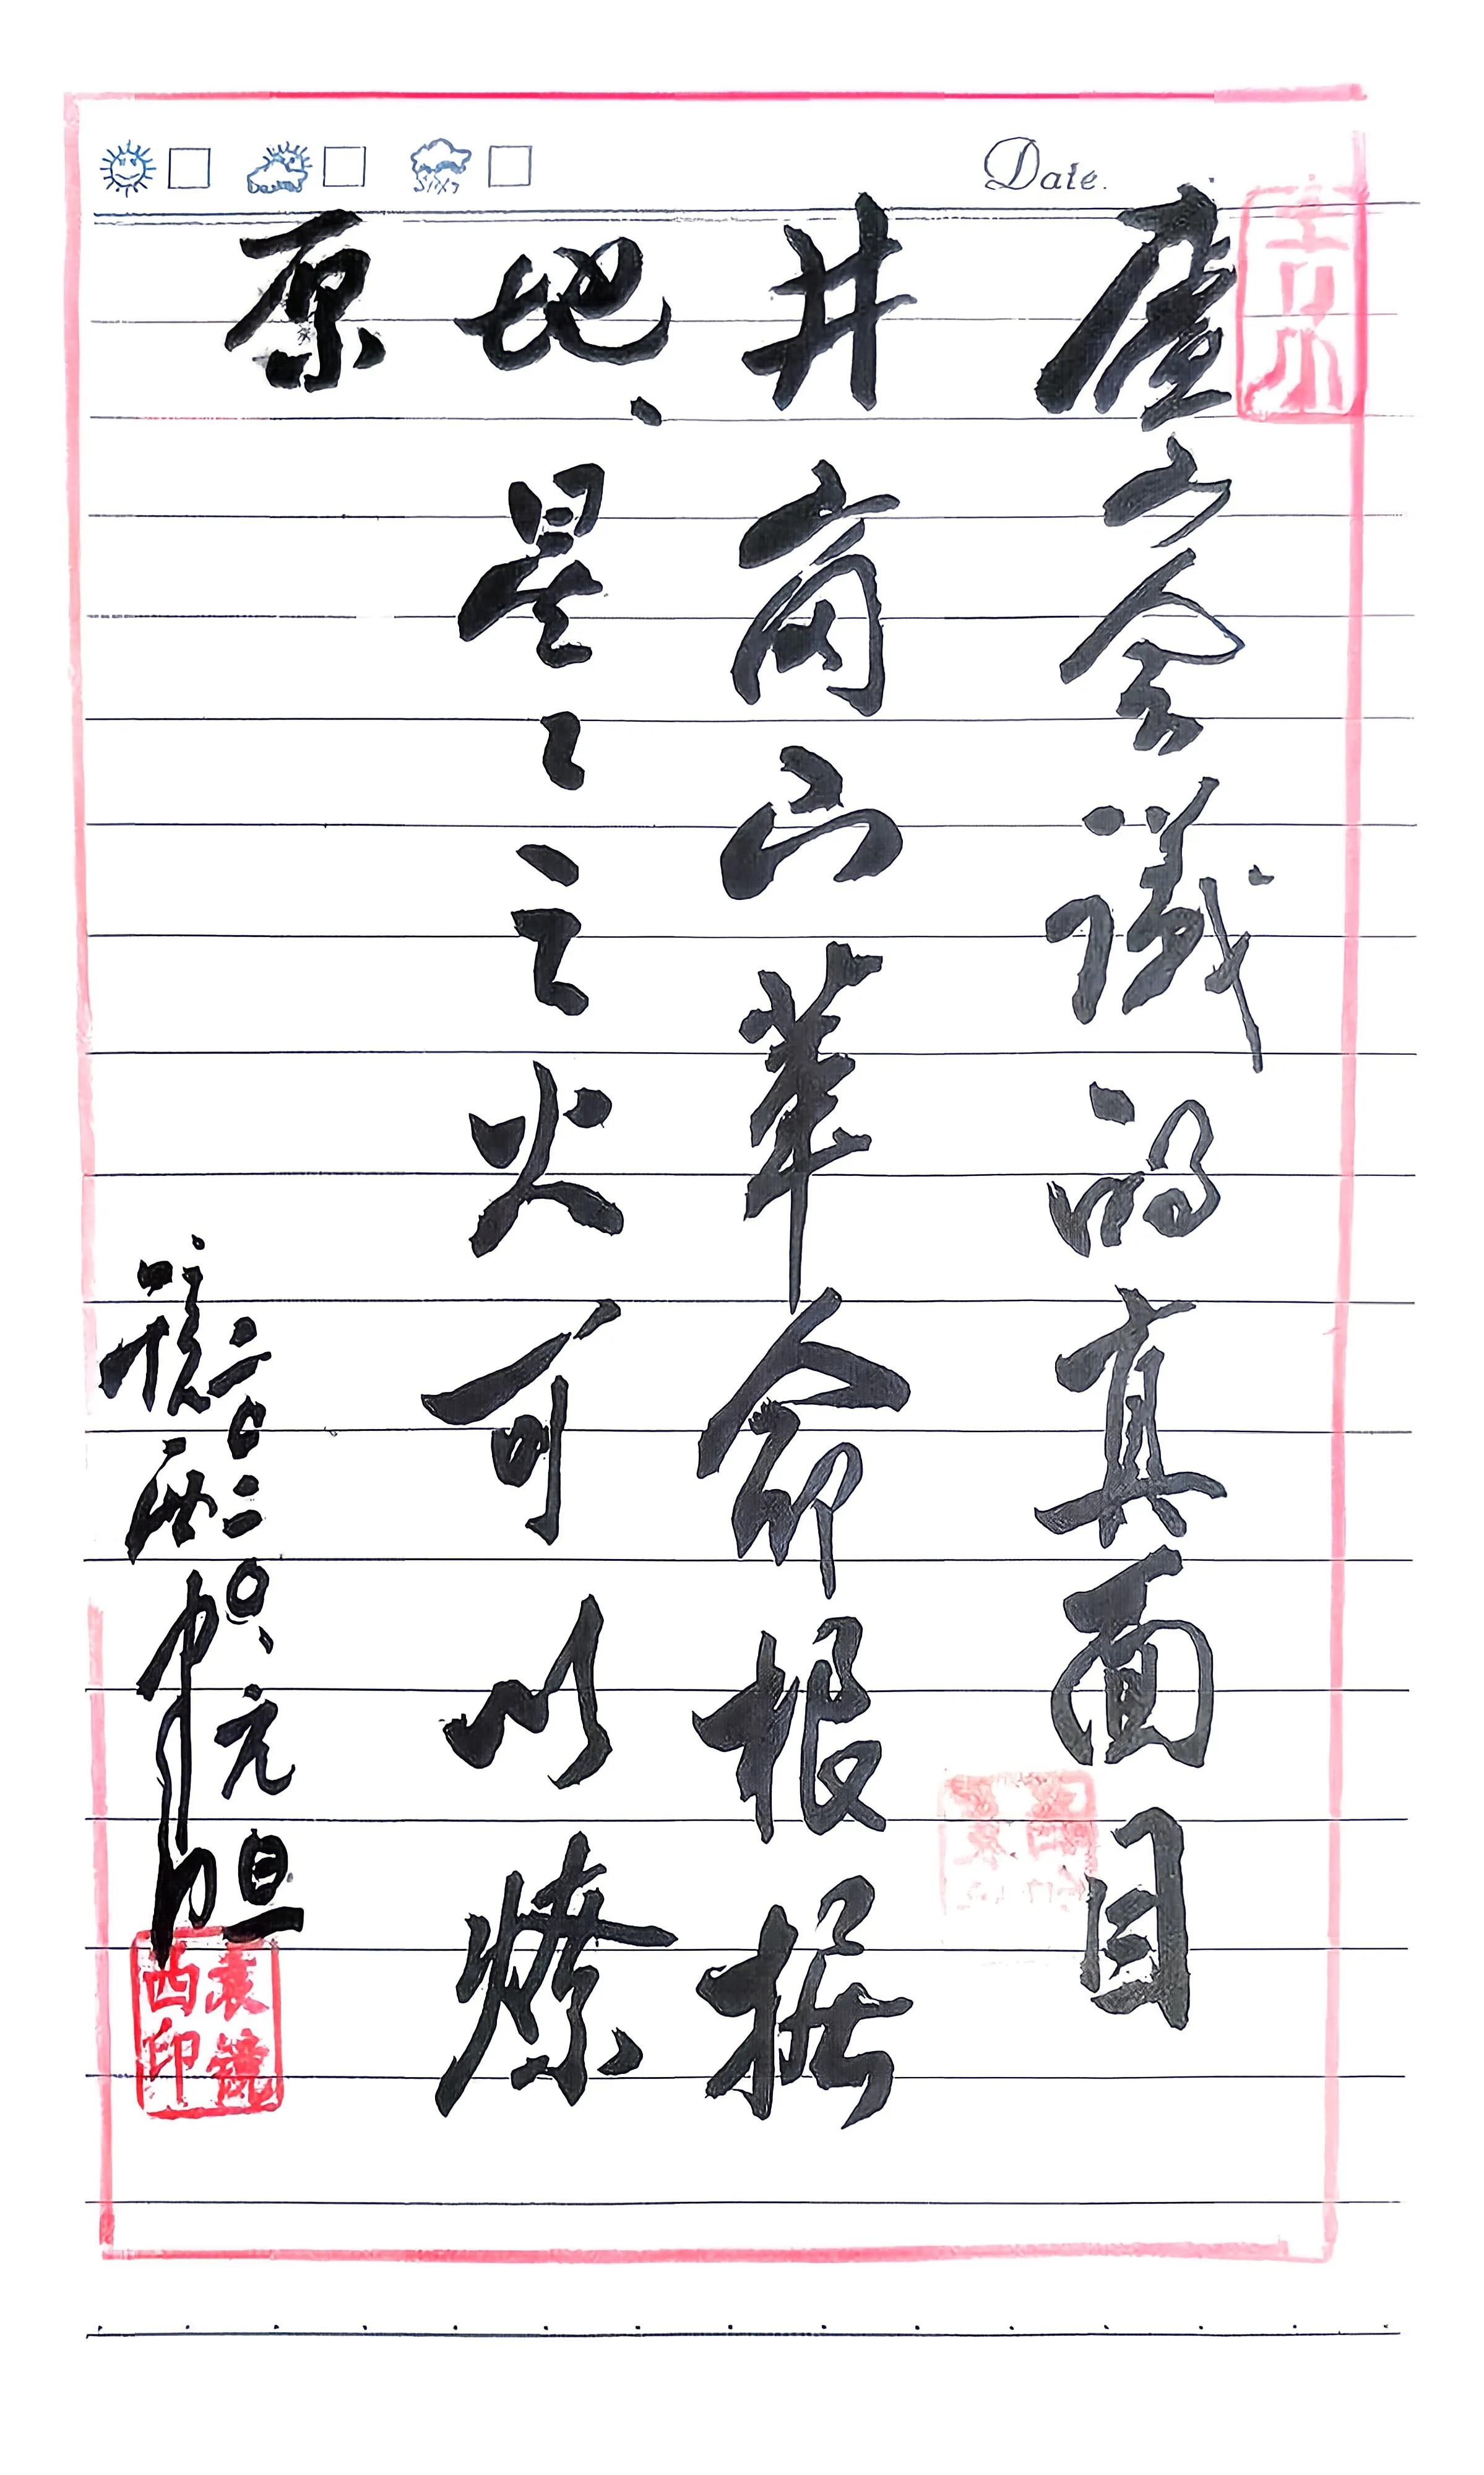 Date.
廬山会議的真面目
井崗山革命根据
地、星々之火可以燎
原
二〇二〇、元旦
袁镜西印